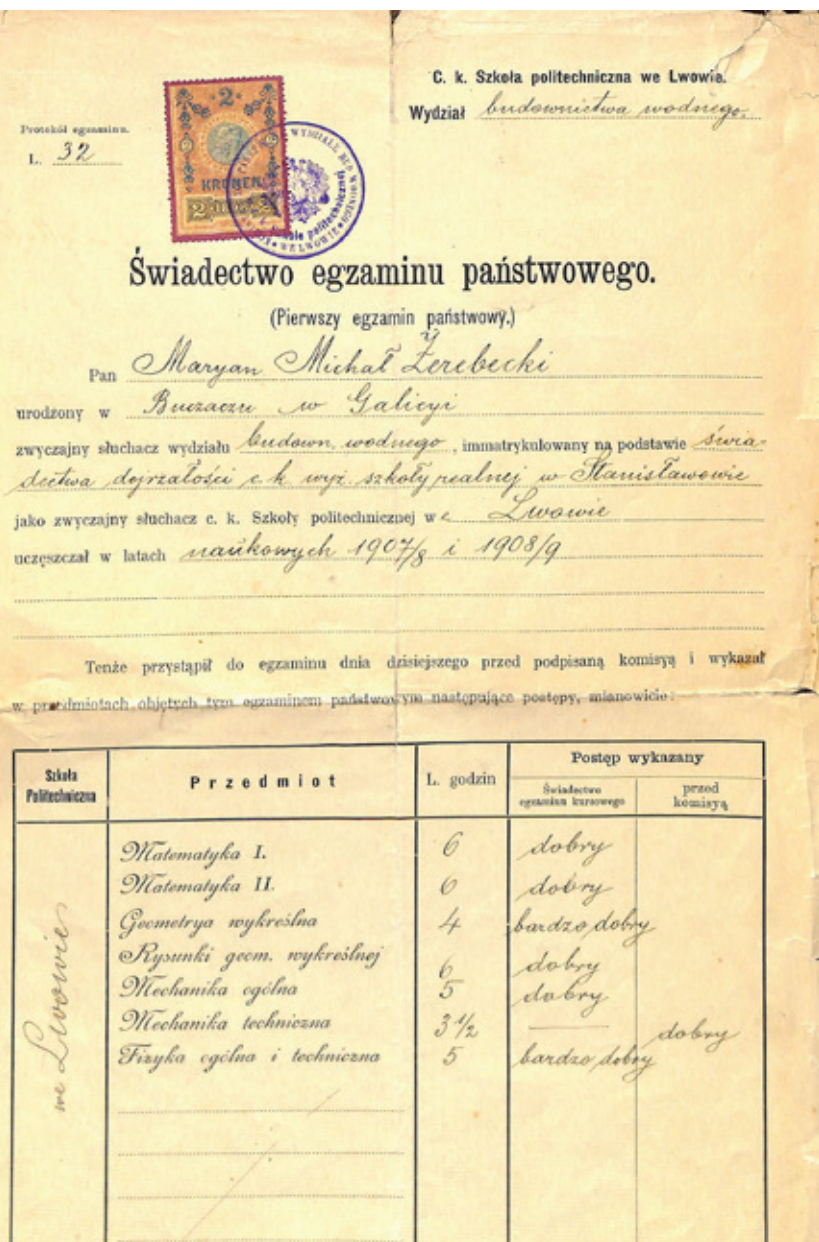 C. k. Szkoła politechniczna we Lwowie.
Wydział budownictwa wodnego.
Protokół egzaminu.
L. 32
2
KRONEN
2 2
WE LWOWIE
Świadectwo egzaminu państwowego.
(Pierwszy egzamin państwowy.)
Pan Maryan Michał Żerebecki
urodzony w Buczaczu w Galicyi
zwyczajny słuchacz wydziału budown. wodnego, immatrykulowany na podstawie świa-
dectwa dojrzałości c. k. wyż. szkoły realnej w Stanisławowie
jako zwyczajny słuchacz c. k. Szkoły politechnicznej we Lwowie
uczęszczał w latach naukowych 1907/8 i 1908/9
Tenże przystąpił do egzaminu dnia dzisiejszego przed podpisaną komisyą i wykazał
w przedmiotach objętych tym egzaminem państwowym następujące postępy, mianowicie:
Szkoła Politechniczna
Przedmiot
L. godzin
Postęp wykazany
Świadectwo egzaminu kursowego
przed komisyą
we Lwowie
Matematyka I. 6 dobry
Matematyka II. 6 dobry
Geometrya wykreślna 4 bardzo dobry
Rysunki geom. wykreślnej 6 dobry
Mechanika ogólna 5 dobry
Mechanika techniczna 3 1/2 — dobry
Fizyka ogólna i techniczna 5 bardzo dobry